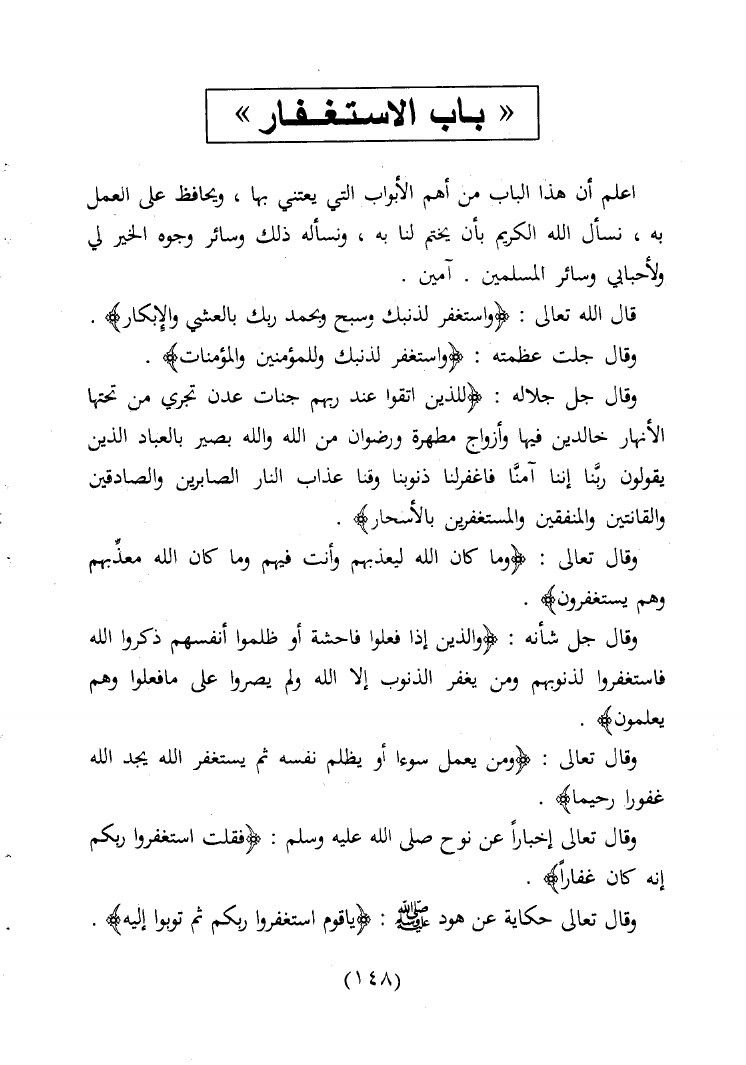 « بـاب الاسـتـغـفـار »
اعلم أن هذا الباب من أهم الأبواب التي يعتني بها ، ويحافظ على العمل
به ، نسأل الله الكريم بأن يختم لنا به ، ونسأله ذلك وسائر وجوه الخير لي
ولأحبابي وسائر المسلمين . آمين .
قال الله تعالى : ﴿واستغفر لذنبك وسبح وبحمد ربك بالعشي والإبكار﴾ .
وقال جلت عظمته : ﴿واستغفر لذنبك وللمؤمنين والمؤمنات﴾ .
وقال جل جلاله : ﴿للذين اتقوا عند ربهم جنات عدن تجري من تحتها
الأنهار خالدين فيها وأزواج مطهرة ورضوان من الله والله بصير بالعباد الذين
يقولون ربَّنا إننا آمنَّا فاغفرلنا ذنوبنا وقنا عذاب النار الصابرين والصادقين
والقانتين والمنفقين والمستغفرين بالأسحار﴾ .
وقال تعالى : ﴿وما كان الله ليعذبهم وأنت فيهم وما كان الله معذِّبهم
وهم يستغفرون﴾ .
وقال جل شأنه : ﴿والذين إذا فعلوا فاحشة أو ظلموا أنفسهم ذكروا الله
فاستغفروا لذنوبهم ومن يغفر الذنوب إلا الله ولم يصروا على مافعلوا وهم
يعلمون﴾ .
وقال تعالى : ﴿ومن يعمل سوءا أو يظلم نفسه ثم يستغفر الله يجد الله
غفورا رحيما﴾ .
وقال تعالى إخباراً عن نوح صلى الله عليه وسلم : ﴿فقلت استغفروا ربكم
إنه كان غفاراً﴾ .
وقال تعالى حكاية عن هود ﷺ : ﴿ياقوم استغفروا ربكم ثم توبوا إليه﴾ .
(١٤٨)